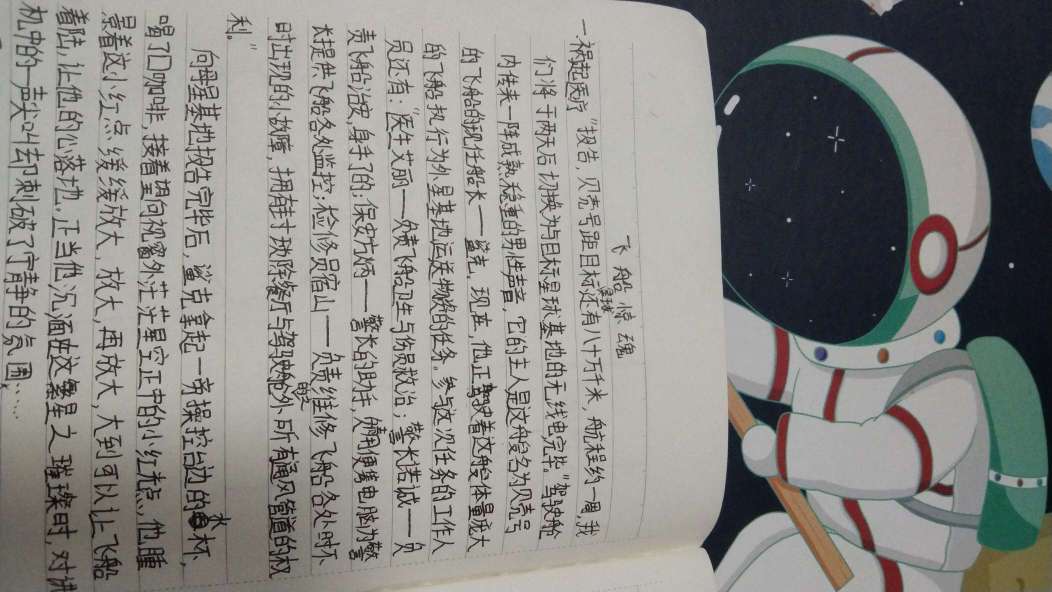 飞船惊魂
一.祸起医疗 "报告,贝壳号距目标星球还有八十万千米,航程约一周,我
们将于两天后切换为与目标星球基地的无线电完毕。"驾驶舱
内传来一阵成熟稳重的男性声音,它的主人是这艘名为贝壳号
的飞船的现任船长——鲨克,现在,他正驾驶着这艘体量庞大
的飞船执行为外星基地运送物资的任务。参与这次任务的工作人
员还有:"医生艾丽——负责飞船卫生与伤员救治;警长浩诚——负
责飞船治安,身手了的;保安方炳——警长的助手,使用便携电脑为警
长提供飞船各处监控;检修员宿山——负责维修飞船各处时不
时出现的小故障,拥有对除餐厅与驾驶舱外所有通风管道的权
利。"
向母星基地报告完毕后,鲨克拿起一旁操控台边的水杯,
喝了口咖啡,接着望向视窗外茫茫星空正中的小红光点,他
着这小红点缓缓放大,放大,再放大,大到可以让飞船
着陆,让他的心落地。正当他沉湎在这繁星之璀璨时,对讲
机中的一声尖叫声却刺破了宁静的氛围……